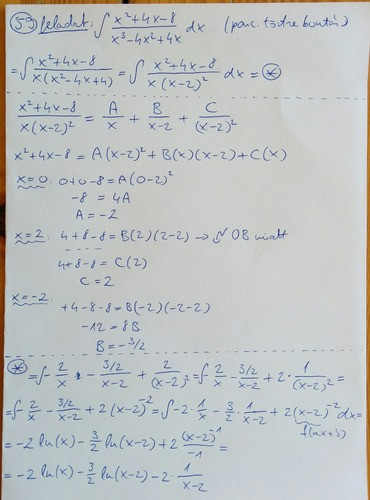 59 feladat: ∫ x²+4x-8 / x³-4x²+4x dx (parc. törtre bontás)
= ∫ x²+4x-8 / x(x²-4x+4) = ∫ x²+4x-8 / x(x-2)² dx = *
x²+4x-8 / x(x-2)² = A/x + B/x-2 + C/(x-2)²
x²+4x-8 = A(x-2)² + B(x)(x-2) + C(x)
x=0: 0+0-8 = A(0-2)²
-8 = 4A
A = -2
x=2: 4+8-8 = B(2)(2-2) → ↯ 0B miatt
4+8-8 = C(2)
C = 2
x=-2: +4-8-8 = B(-2)(-2-2)
-12 = 8B
B = -3/2
* = ∫ - 2/x - 3/2 / x-2 + 2/(x-2)² = ∫ - 2/x - 3/2 / x-2 + 2· 1/(x-2)² =
= ∫ - 2/x - 3/2 / x-2 + 2(x-2)⁻² = ∫ -2· 1/x - 3/2 · 1/x-2 + 2(x-2)⁻² dx =
f(ax+b)
= -2 ln(x) - 3/2 ln(x-2) + 2 (x-2)⁻¹ / -1 =
= -2 ln(x) - 3/2 ln(x-2) - 2· 1/x-2